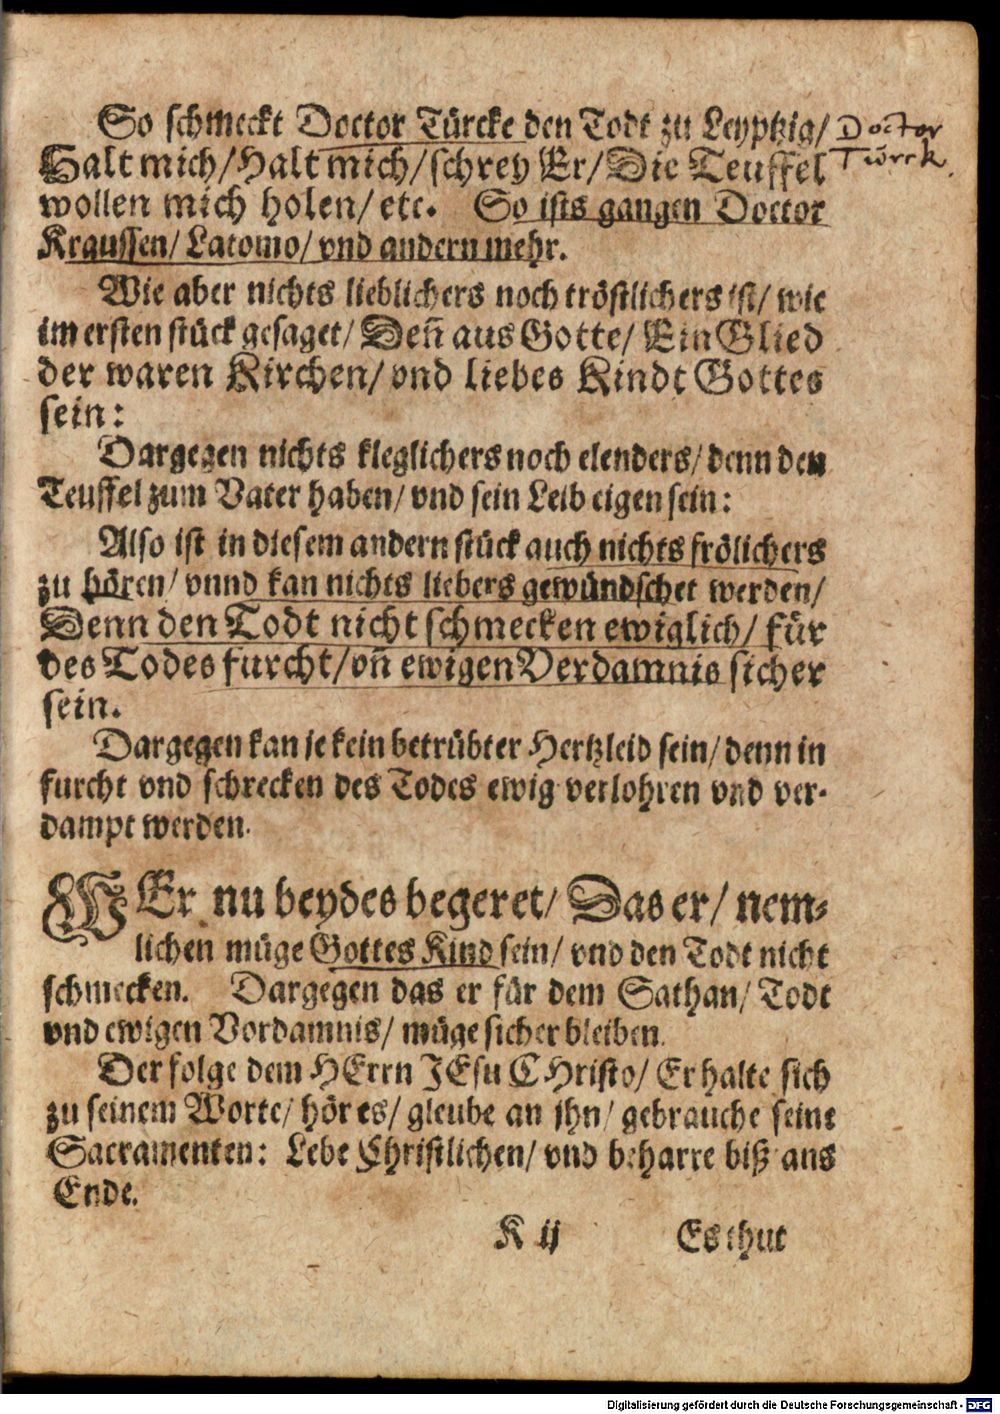 So schmeckt Doctor Türcke den Todt zu Leyptzig/
Doctor
Türck.
Halt mich/Halt mich/schrey Er/Die Teuffel
wollen mich holen/etc. So ists gangen Doctor
Kraussen/Latomo/vnd andern mehr.
Wie aber nichts lieblichers noch tröstlichers ist/wie
im ersten stück gesaget/Den̄ aus Gotte/Ein Glied
der waren Kirchen/vnd liebes Kindt Gottes
sein:
Dargegen nichts kleglichers noch elenders/denn den
Teuffel zum Vater haben/vnd sein Leib eigen sein:
Also ist in diesem andern stück auch nichts frölichers
zu hören/vnnd kan nichts liebers gewündschet werden/
Denn den Todt nicht schmecken ewiglich/für
des Todes furcht/vn̄ ewigen Verdamnis sicher
sein.
Dargegen kan je kein betrübter Hertzleid sein/denn in
furcht vnd schrecken des Todes ewig verlohren vnd ver-
dampt werden.
WEr nu beydes begeret/Das er/nem-
lichen müge Gottes Kind sein/vnd den Todt nicht
schmecken. Dargegen das er für dem Sathan/Todt
vnd ewigen Vordamnis/müge sicher bleiben.
Der folge dem HErrn JEsu CHristo/Er halte sich
zu seinem Worte/hör es/gleube an jhn/gebrauche seine
Sacramenten: Lebe Christlichen/vnd beharre biß ans
Ende.
K ij
Es thut
Digitalisierung gefördert durch die Deutsche Forschungsgemeinschaft - DFG